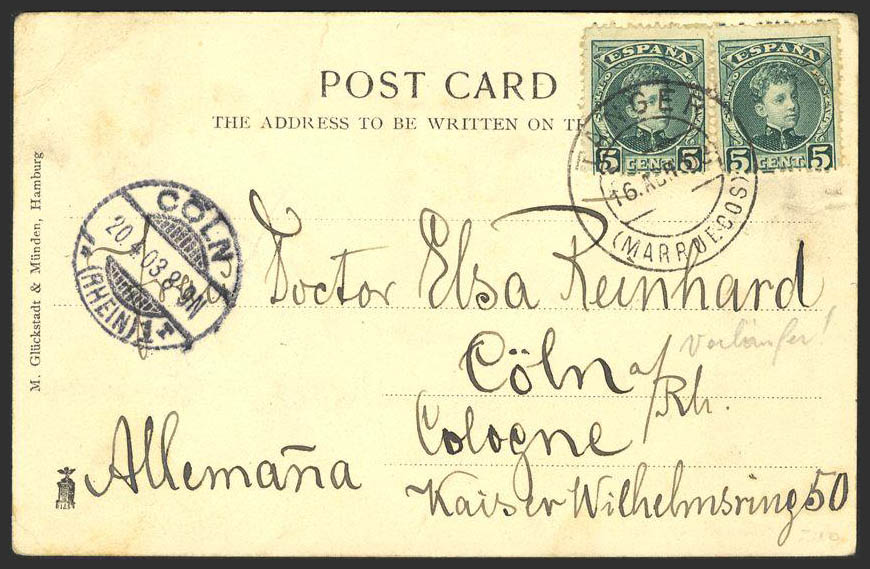 ESPAÑA
ESPAÑA
5 CENT 5
5 CENT 5
POST CARD
THE ADDRESS TO BE WRITTEN ON TH
TANGER
16 ABR
(MARRUECOS)
M. Glückstadt & Münden, Hamburg
CÖLN
20.4.03.8-9N
*(RHEIN)1T
Doctor Elsa Reinhard
Cöln a/Rh.
Cologne
Allemaña
Kaiser Wilhelmsring 50